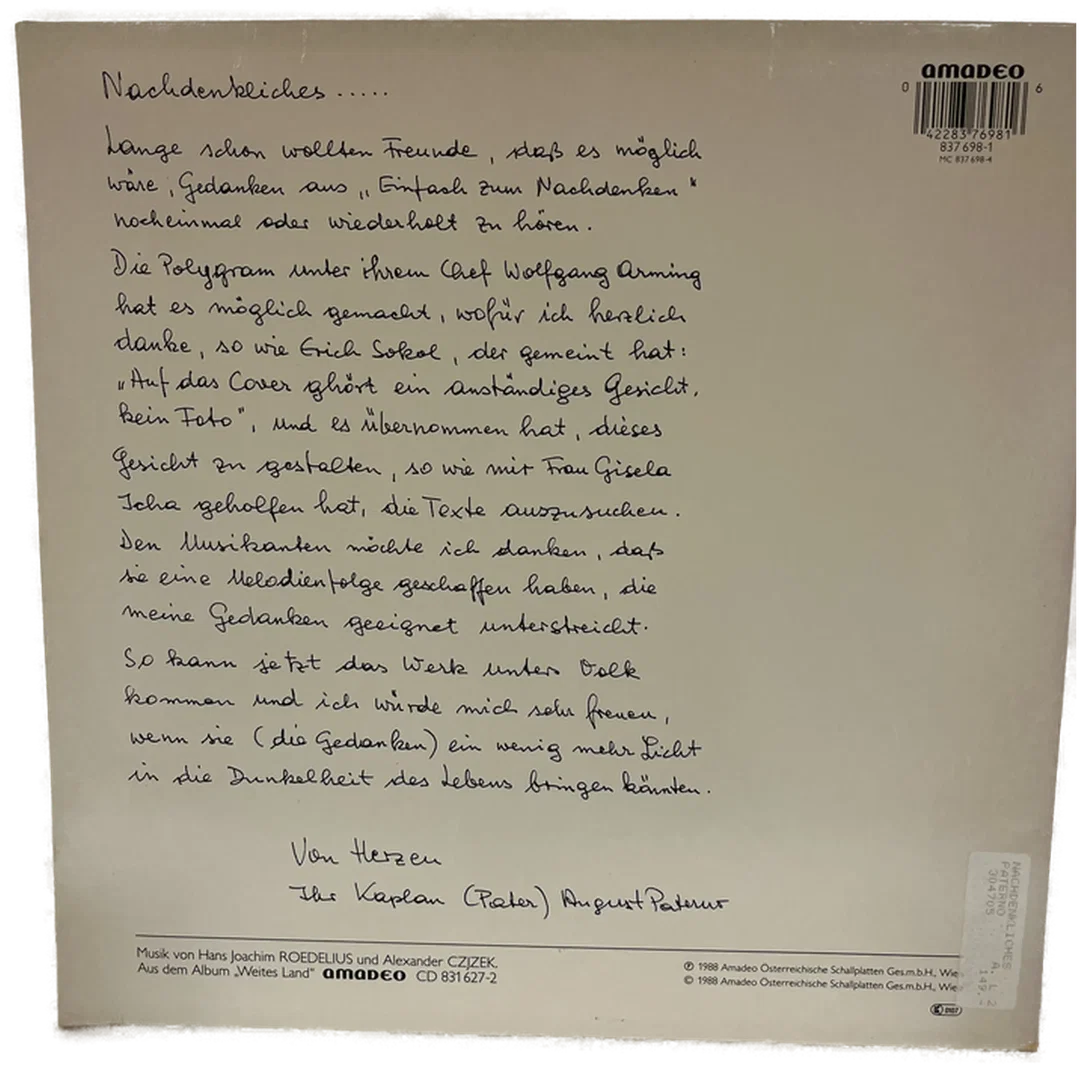 Nachdenkliches .....
Lange schon wollten Freunde, daß es möglich
wäre, Gedanken aus „Einfach zum Nachdenken“
nocheinmal oder wiederholt zu hören.
Die Polygram unter ihrem Chef Wolfgang Arming
hat es möglich gemacht, wofür ich herzlich
danke, so wie Erich Sokol, der gemeint hat:
„Auf das Cover ghört ein anständiges Gesicht,
kein Foto“, und es übernommen hat, dieses
Gesicht zu gestalten, so wie mir Frau Gisela
Icha geholfen hat, die Texte auszusuchen.
Den Musikanten möchte ich danken, daß
sie eine Melodienfolge geschaffen haben, die
meine Gedanken geeignet unterstreicht.
So kann jetzt das Werk unters Volk
kommen und ich würde mich sehr freuen,
wenn sie (die Gedanken) ein wenig mehr Licht
in die Dunkelheit des Lebens bringen könnten.
Von Herzen
Ihr Kaplan (Pater) August Paterno
amadeo
0 42283 76981 6
837 698-1
MC 837 698-4
Musik von Hans Joachim ROEDELIUS und Alexander CZJZEK.
Aus dem Album „Weites Land“ amadeo CD 831 627-2
Ⓟ 1988 Amadeo Österreichische Schallplatten Ges.m.b.H., Wie
© 1988 Amadeo Österreichische Schallplatten Ges.m.b.H., Wie
LC 0107
NACHDENKLICHES
PATERNO A. L 2
304705 149,-